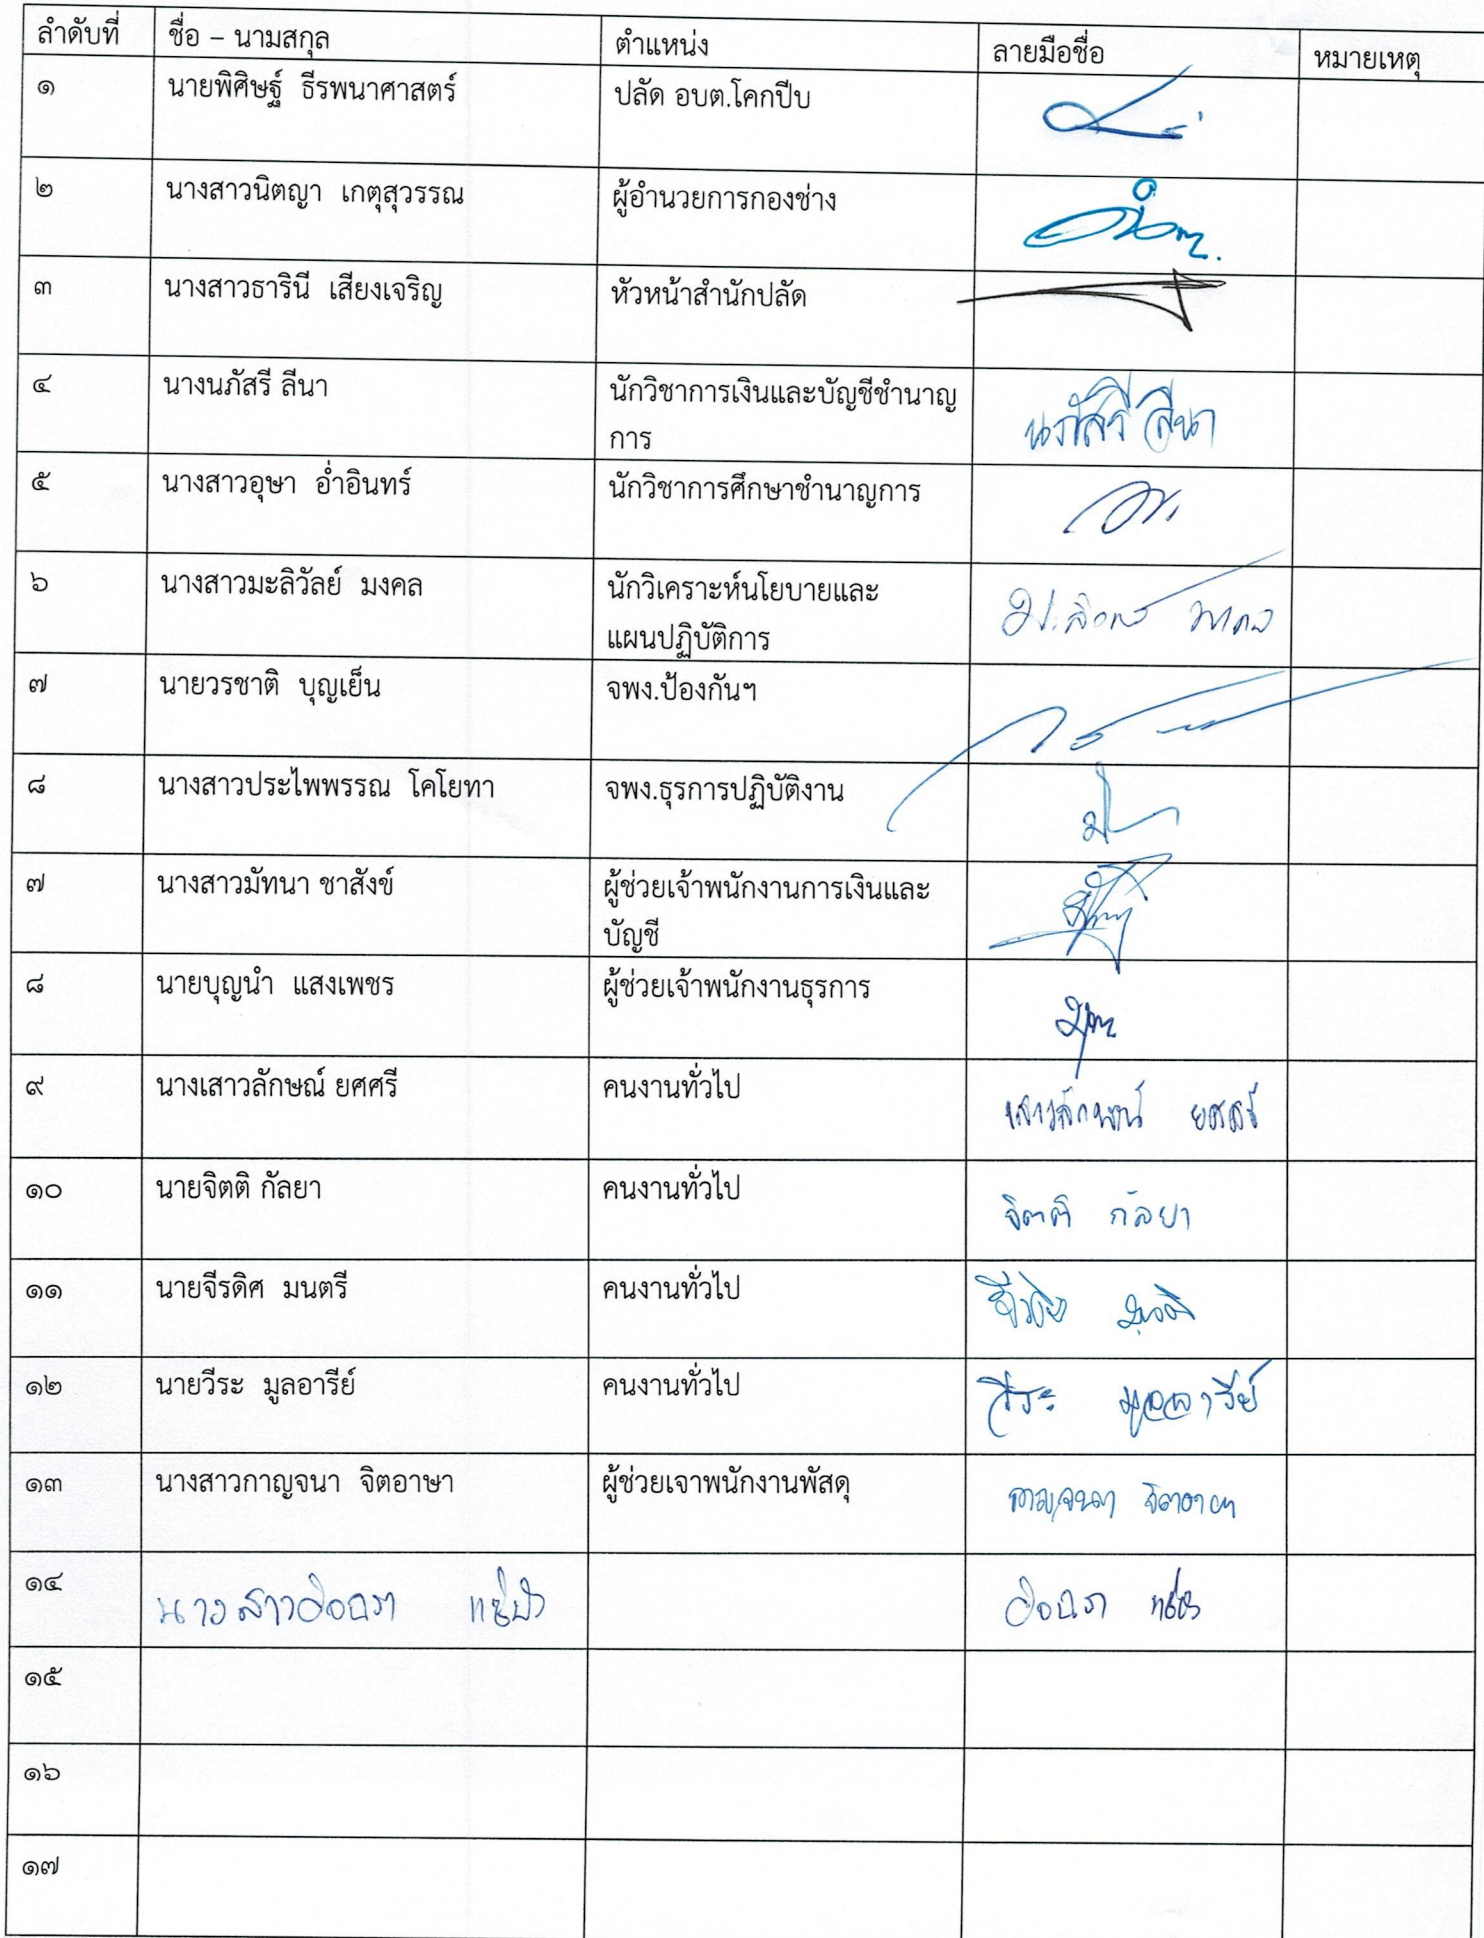 ลำดับที่ ชื่อ – นามสกุล ตำแหน่ง ลายมือชื่อ หมายเหตุ
๑ นายพิศิษฐ์ ธีรพนาศาสตร์ ปลัด อบต.โคกปีบ
๒ นางสาวนิตญา เกตุสุวรรณ ผู้อำนวยการกองช่าง
๓ นางสาวธารินี เสียงเจริญ หัวหน้าสำนักปลัด
๔ นางนภัสรี ลีนา นักวิชาการเงินและบัญชีชำนาญ
การ นภัสรี ลีนา
๕ นางสาวอุษา อ่ำอินทร์ นักวิชาการศึกษาชำนาญการ
๖ นางสาวมะลิวัลย์ มงคล นักวิเคราะห์นโยบายและ
แผนปฏิบัติการ
๗ นายวรชาติ บุญเย็น จพง.ป้องกันฯ
๘ นางสาวประไพพรรณ โคโยทา จพง.ธุรการปฏิบัติงาน
๗ นางสาวมัทนา ชาสังข์ ผู้ช่วยเจ้าพนักงานการเงินและ
บัญชี
๘ นายบุญนำ แสงเพชร ผู้ช่วยเจ้าพนักงานธุรการ
๙ นางเสาวลักษณ์ ยศศรี คนงานทั่วไป เสาวลักษณ์ ยศศรี
๑๐ นายจิตติ กัลยา คนงานทั่วไป จิตติ กัลยา
๑๑ นายจีรดิศ มนตรี คนงานทั่วไป
๑๒ นายวีระ มูลอารีย์ คนงานทั่วไป วีระ มูลอารีย์
๑๓ นางสาวกาญจนา จิตอาษา ผู้ช่วยเจาพนักงานพัสดุ กาญจนา จิตอาษา
๑๔
๑๕
๑๖
๑๗